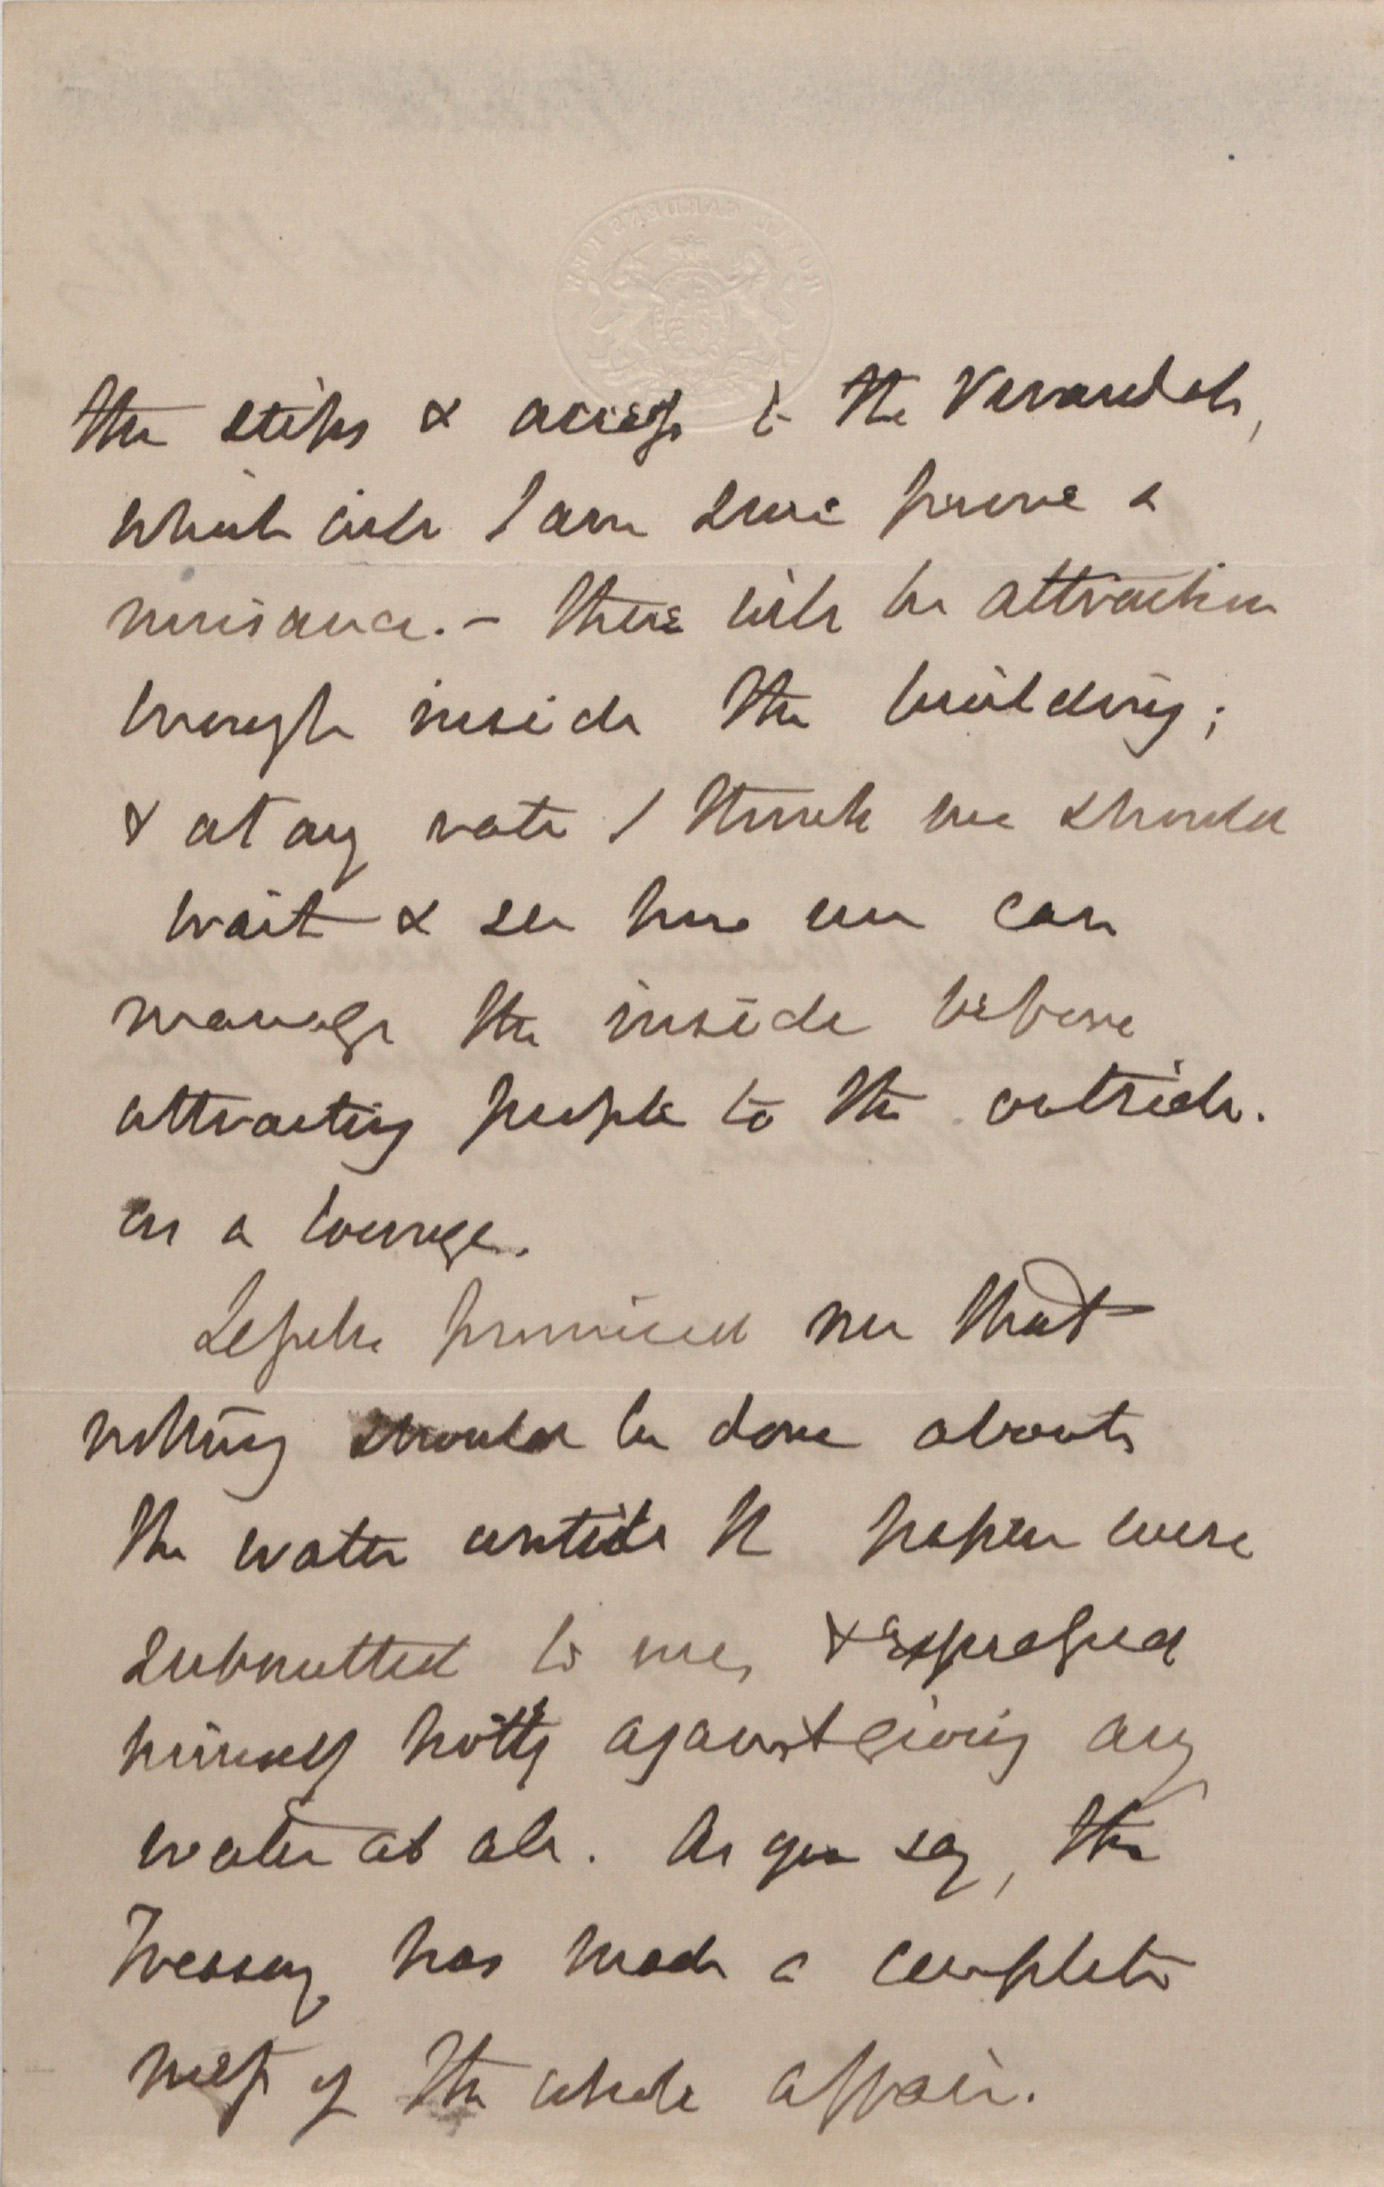 the steps & access to the Verandah,
which will I am sure prove a
nuisance. – There will be attraction
enough inside the building;
& at any rate I think we should
wait & see how we can
manage the inside before
attracting people to the outside.
as a lounge.
promised me that
nothing should be done about
the water until the papers were
submitted to me, & expressed
himself hotly against giving any
water at all. As you say, the
Treasury has made a complete
mess of the whole affair.